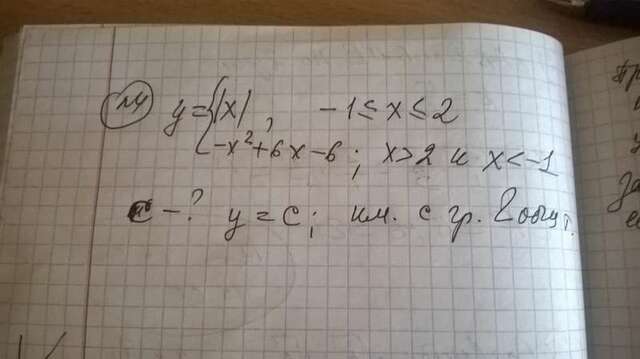 №4 y = { |x| , -1 ≤ x ≤ 2
-x²+6x-6 ; x>2 и x<-1
c - ? y = c ; им. с гр. 2 общ. т.